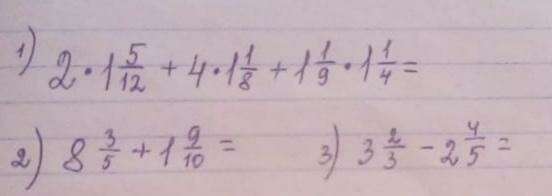 1) 2 · 1 5/12 + 4 · 1 1/8 + 1 1/9 · 1 1/4 =
2) 8 3/5 + 1 9/10 = 3) 3 2/3 - 2 4/5 =